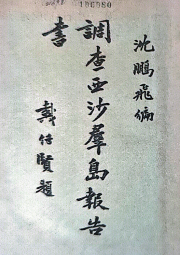 沈鵬飛編
調查西沙羣島報告
書
戴傳賢題